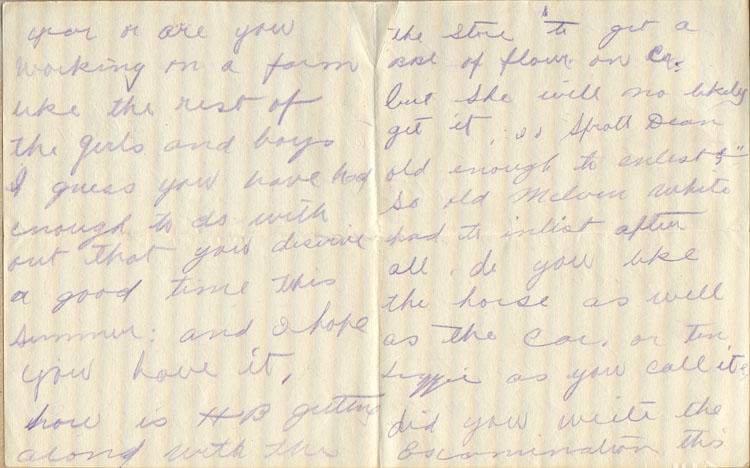 year or are you
working on a farm
like the rest of
the girls and boys
I guess you have had
enough to do with
out that you diserve
a good time this
summer: and I hope
you have it,
how is HB getting
along with the
the store to get a
of flour on Cr.
but she will no likely
get it, is Spratt Dean
old enough to enlist?"
So old Melvin White
had to inlist after
all. do you like
the horse as well
as the Car, or tin
Lizzie as you call it,
did you write the
Examination this